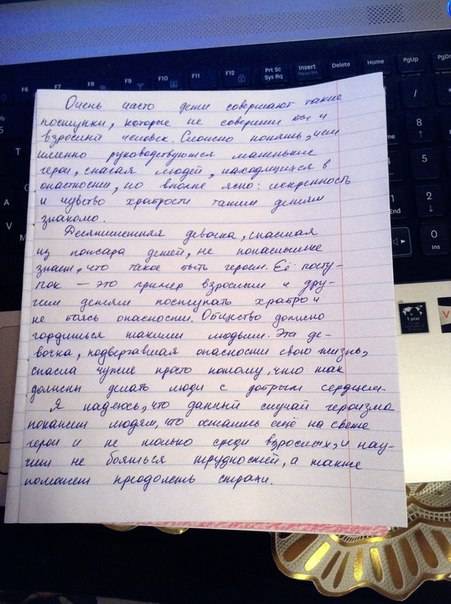 Insert
Delete
Home
PgUp
PgDn
Prt Sc
Sys Rq
F7
F8
F9
F10
F11
F12
Очень часто дети совершают такие
поступки, которые не совершил бы и
взрослый человек. Сложно понять, чем
именно руководствуются маленькие
герои, спасая людей, находящихся в
опасности, но вполне ясно: искренность
и чувство храбрости таким детям
знакомо.
Десятилетняя девочка, спасшая
из пожара детей, не понаслышке
знает, что такое быть героем. Её посту-
пок – это пример взрослым и дру-
гим детям поступать храбро и
не боясь опасности. Общество должно
гордиться такими людьми. Эта де-
вочка, подвергавшая опасности свою жизнь,
спасла чужие просто потому, что так
должны делать люди с добрым сердцем.
Я надеюсь, что данный случай героизма
покажет людям, что остались ещё на свете
герои и не только среди взрослых, и нау-
чит не бояться трудностей, а также
поможет преодолеть страхи.